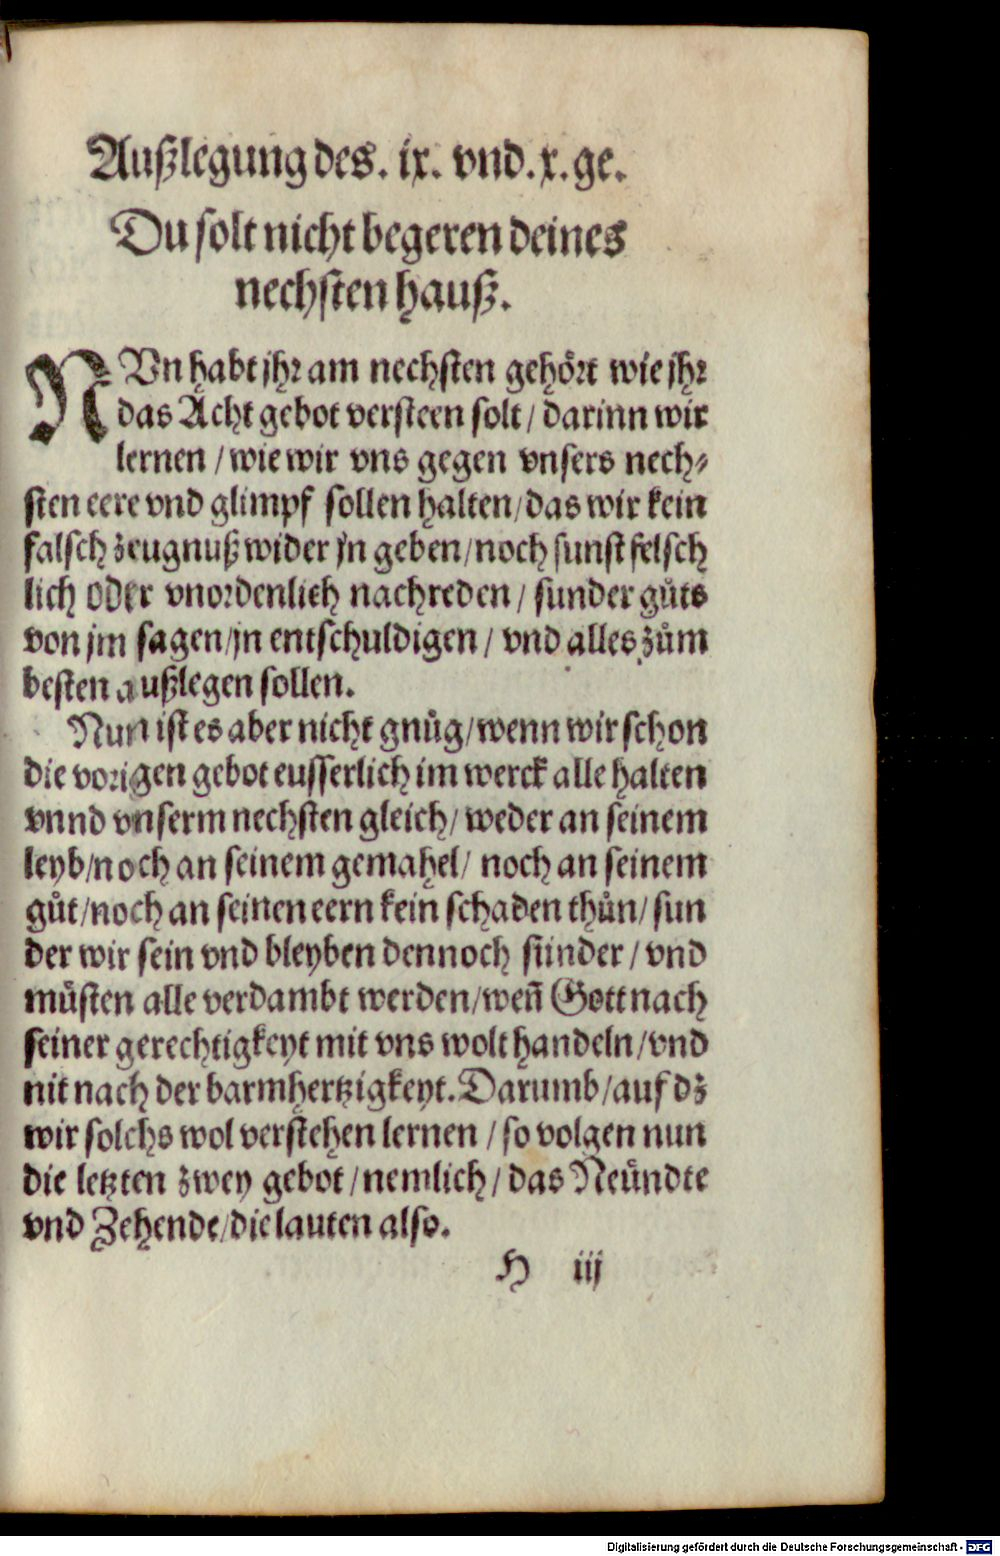 Außlegung des. ix. vnd. x. ge.
Du solt nicht begeren deines
nechsten hauß.
NVn habt jhr am nechsten gehört wie jhr
das Acht gebot versteen solt / darinn wir
lernen / wie wir vns gegen vnsers nech⸗
sten eere vnd glimpf sollen halten / das wir kein
falsch zeugnuß wider jn geben / noch sunst felsch
lich oder vnordenlich nachreden / sunder gůts
von jm sagen / jn entschuldigen / vnd alles zům
besten außlegen sollen.
Nun ist es aber nicht gnůg / wenn wir schon
die vorigen gebot eusserlich im werck alle halten
vnnd vnserm nechsten gleich / weder an seinem
leyb / noch an seinem gemahel / noch an seinem
gůt / noch an seinen eern kein schaden thůn / sun
der wir sein vnd bleyben dennoch sünder / vnd
müsten alle verdambt werden / weñ Gott nach
seiner gerechtigkeyt mit vns wolt handeln / vnd
nit nach der barmhertzigkeyt. Darumb / auf dz
wir solchs wol verstehen lernen / so volgen nun
die letzten zwey gebot / nemlich / das Neündte
vnd Zehende / die lauten also.
H iij
Digitalisierung gefördert durch die Deutsche Forschungsgemeinschaft - DFG